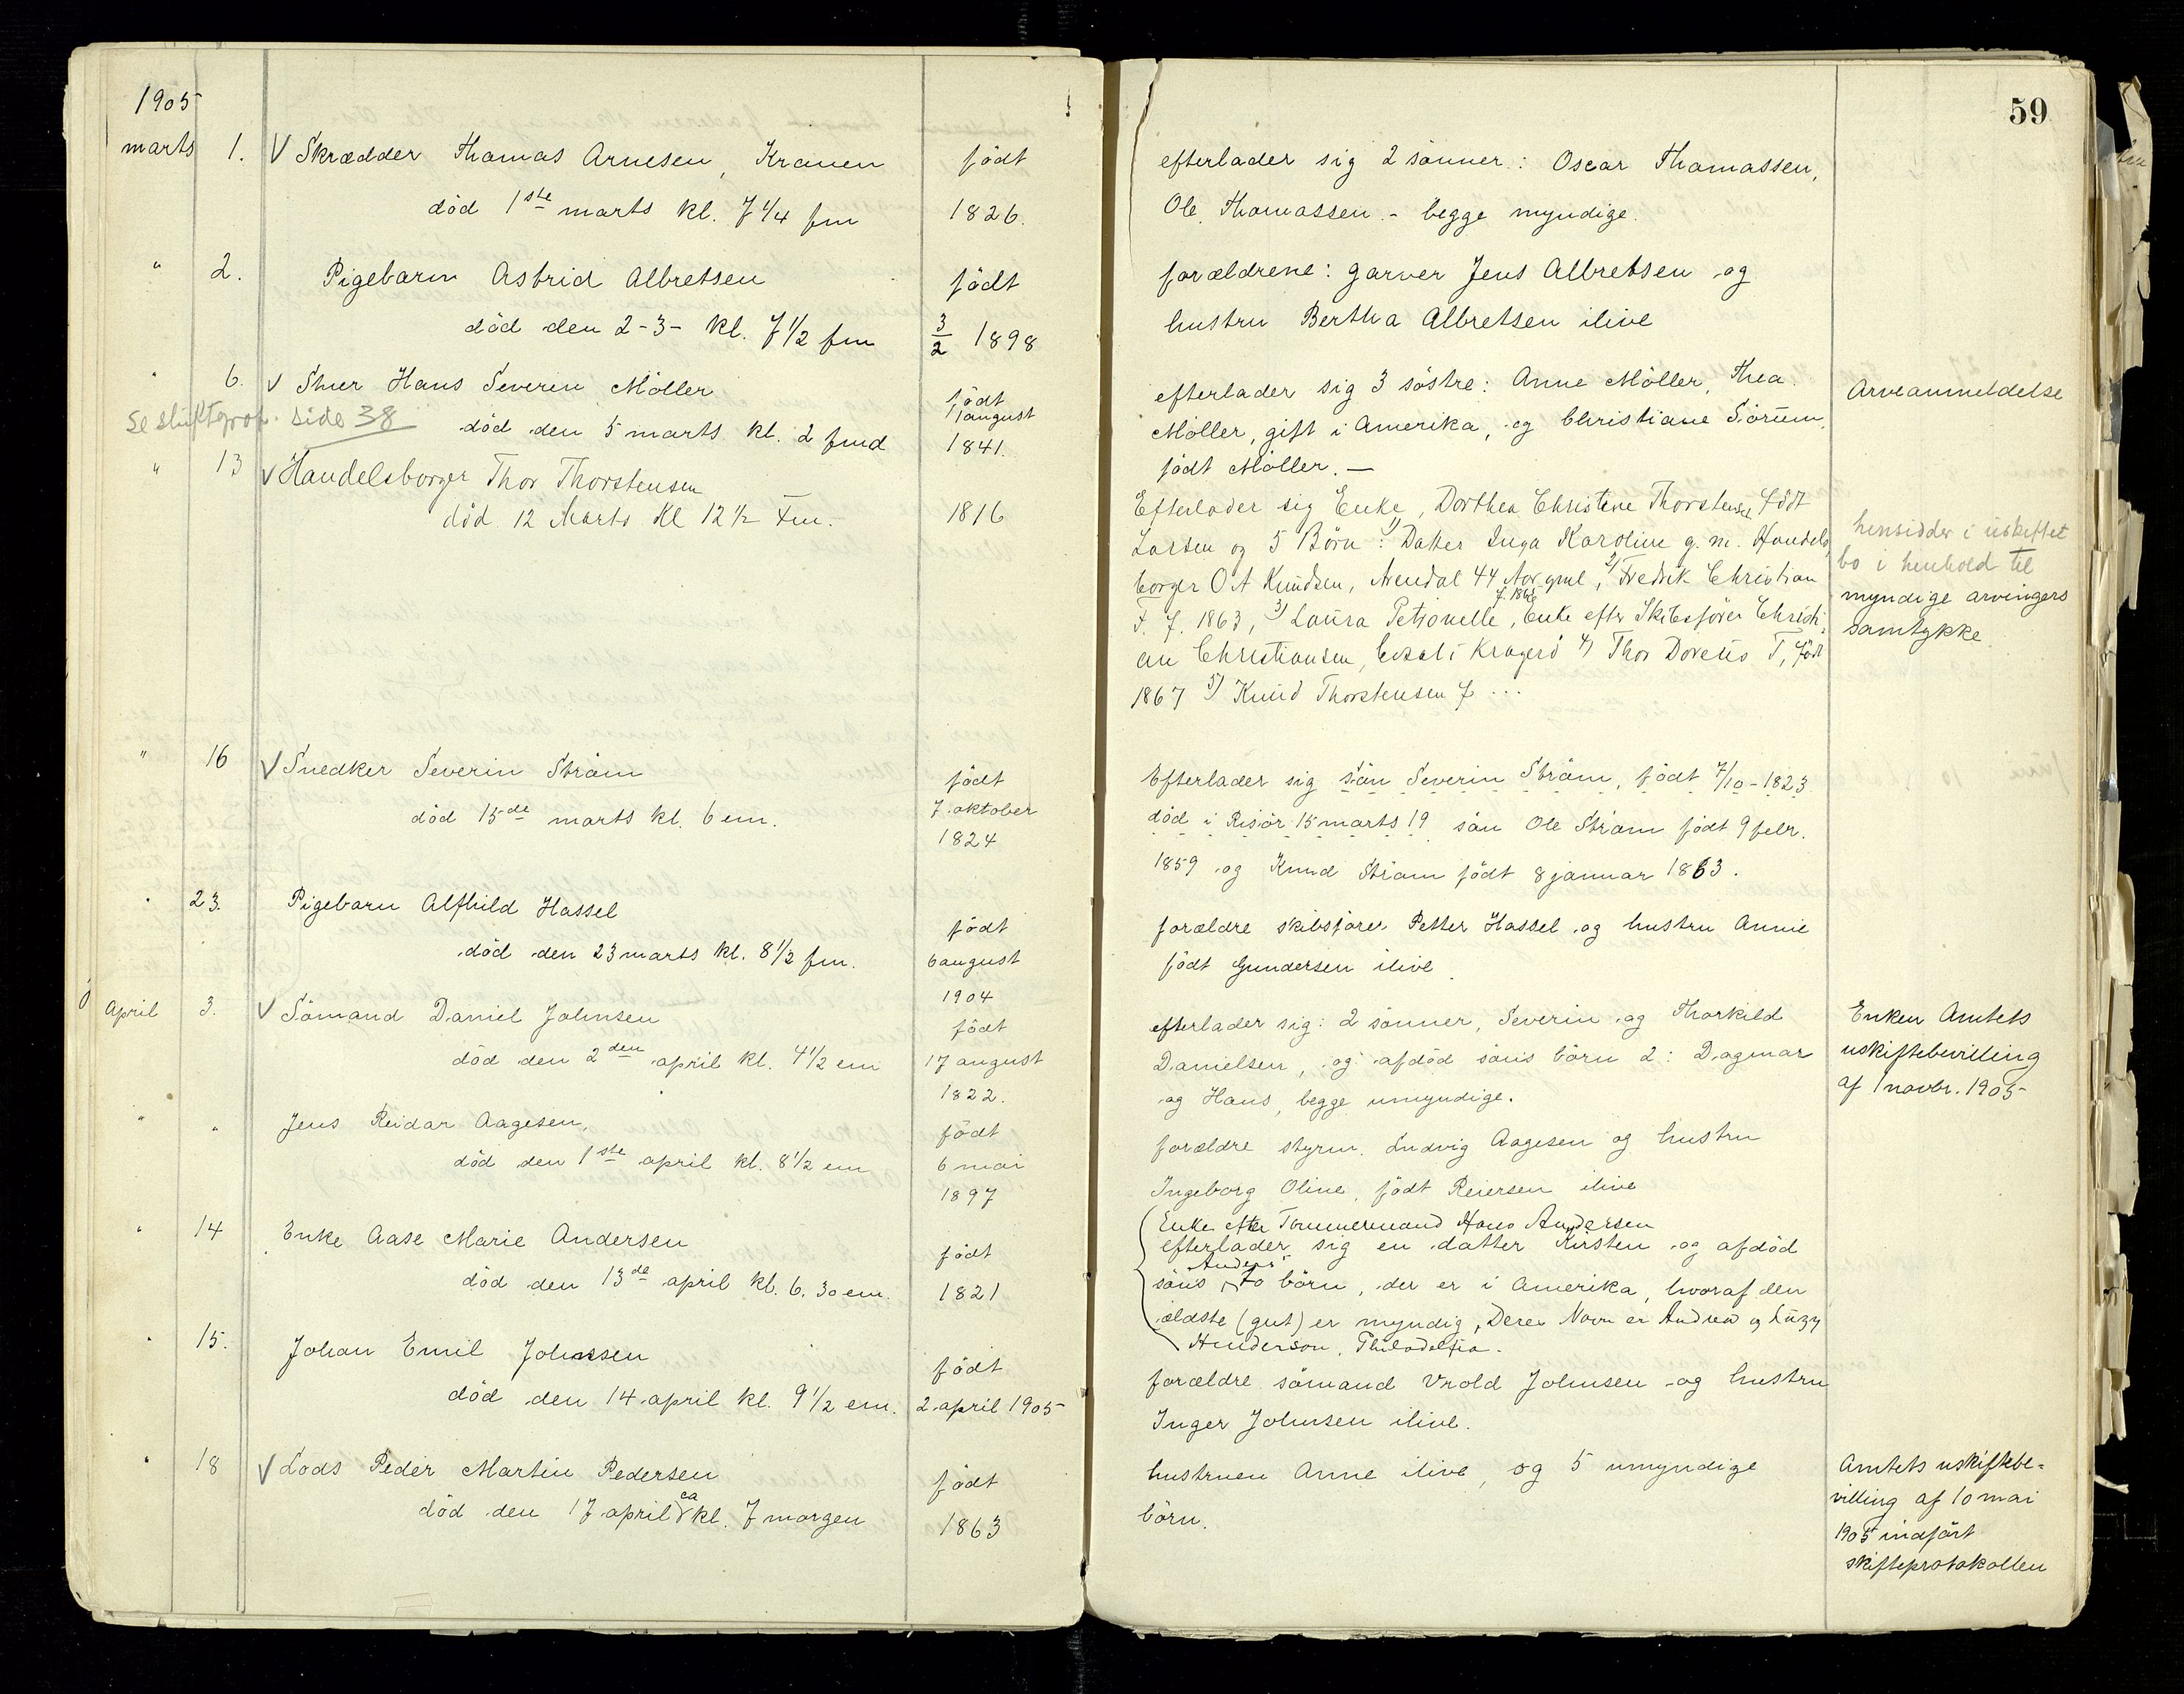 1905
59
marts 1. V Skrædder Thomas Arnesen, Kranen født
død 1ste marts kl. 7 1/4 fm 1826.
efterlader sig 2 sønner: Oscar Thomassen,
Ole Thomassen - begge myndige.
" 2. Pigebarn Astrid Albretsen født
død den 2-3- kl. 7 1/2 fm 3/2 1898
forældrene: garver Jens Albretsen og
hustru Bertha Albretsen ilive
" 6. V Stuer Hans Severin Møller født
se skiftprot. side 38 død den 5 marts kl. 2 fmd 11 august
1841.
efterlader sig 3 søstre: Anne Møller, Thea
Møller, gift i Amerika, og Christiane Sørum,
født Møller. —
Arveanmeldelse
" 13 V Handelsborger Thor Thorstensen
død 12 Marts Kl 12 1/2 Fm. 1816
Efterlader sig Enke, Dorthea Christine Thorstensen født
Larsen og 5 Børn: 1) Datter Inga Karoline g. m. Handels
borger O A Knudsen, Arendal 44 Aar gml, 2) Fredrik Christian
T. f. 1863, 3) Laura Petronelle, f. 1865 Enke efter Skibsfører Christi
an Christiansen, bosat i Kragerø 4) Thor Doreus T, født
1867 5) Knud Thorstensen f ...
hensidder i uskiftet
bo i henhold til
myndige arvingers
samtykke
" 16 V Snedker Severin Strøm født
død 15de marts kl. 6 em. 7. oktober
1824
Efterlader sig søn Severin Strøm, født 7/10-1823
død i Risør 15 marts 19 søn Ole Strøm født 9 febr.
1859 og Knud Strøm født 8 januar 1863.
" 23. Pigebarn Alfhild Hassel født
død den 23 marts kl. 8 1/2 fm. 6 august
1904
forældre skibsfører Petter Hassel og hustru Annie
født Gundersen ilive.
April 3. V Sømand Daniel Johnsen født
død den 2den april kl. 4 1/2 em 17 august
1822.
efterlader sig: 2 sønner, Severin og Thorkild
Danielsen, og afdød søns børn 2: Dagmar
og Hans, begge umyndige.
Enken Amtets
uskiftebevilling
af 1 novbr. 1905
" " Jens Reidar Aagesen, født
død den 1ste april kl. 8 1/2 em 6 mai
1897
forældre styrm. Ludvig Aagesen og hustru
Ingeborg Oline, født Reiersen ilive
" 14 Enke Aase Marie Andersen født
død den 13de april kl. 6.30 em. 1821
Enke efter Tømmermand Hans Andersen
efterlader sig en datter Kirsten og afdød
søns Anders' to børn, der er i Amerika, hvoraf den
ældste (gut) er myndig, Deres Navn er Andrew og Lizzy
Henderson, Philadelfia.
" 15. Johan Emil Johnssen født
død den 14 april kl. 9 1/2 em. 2 april 1905
forældre sømand Vrold Johnsen og hustru
Inger Johnsen ilive.
" 18 V Lods Peder Martin Pedersen født
død den 17 april ca kl. 7 morgen 1863
hustruen Anne ilive, og 5 umyndige
børn.
Amtets uskiftebe=
villing af 10 mai
1905 indført
skifteprotokollen